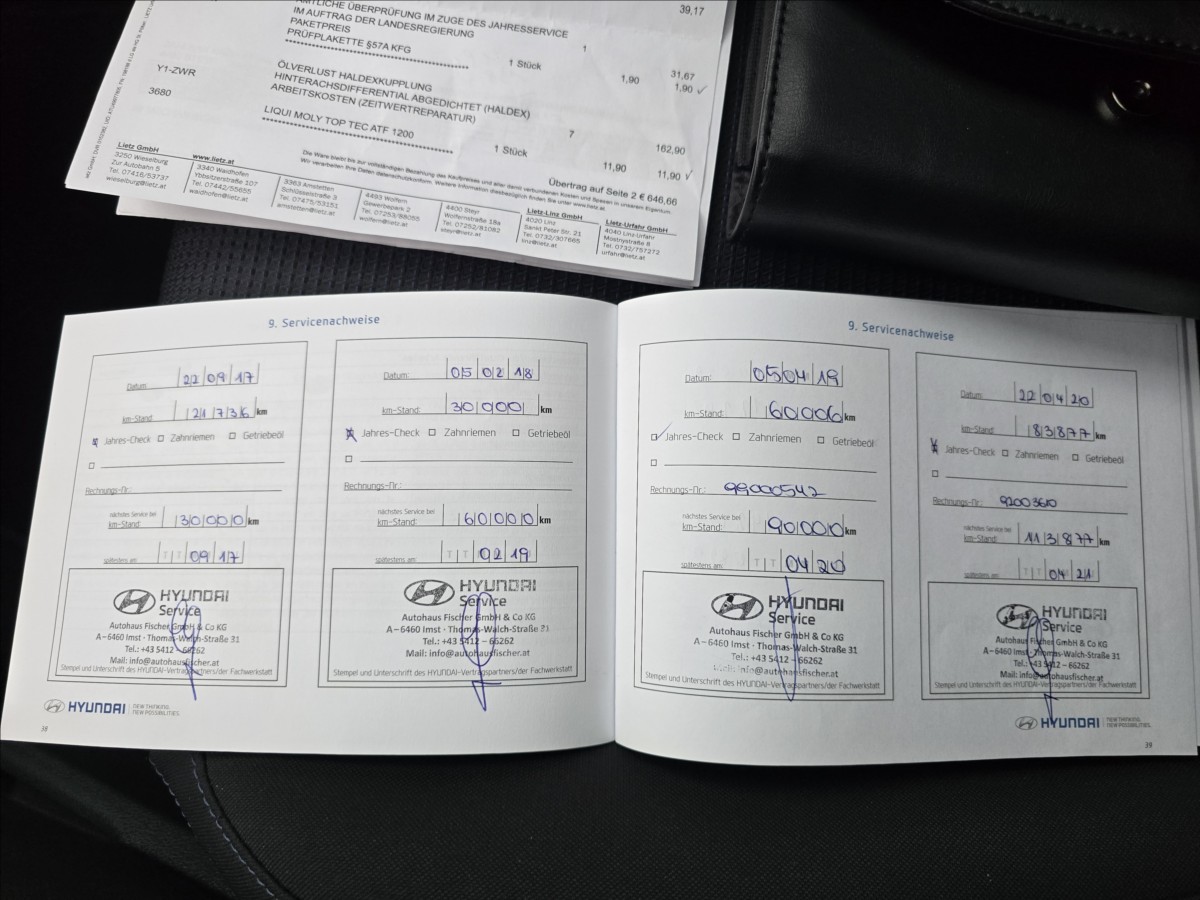 39,17
AMTLICHE ÜBERPRÜFUNG IM ZUGE DES JAHRESSERVICE
IM AUFTRAG DER LANDESREGIERUNG
PAKETPREIS 1 31,67
PRÜFPLAKETTE §57A KFG 1 Stück 1,90 1,90
****************************************
Y1-ZWR ÖLVERLUST HALDEXKUPPLUNG
HINTERACHSDIFFERENTIAL ABGEDICHTET (HALDEX)
ARBEITSKOSTEN (ZEITWERTREPARATUR) 7 162,90
3680 LIQUI MOLY TOP TEC ATF 1200 1 Stück 11,90 11,90
****************************************
Übertrag auf Seite 2 € 646,66
Die Ware bleibt bis zur vollständigen Bezahlung des Kaufpreises und aller damit verbundenen Kosten und Spesen in unserem Eigentum.
Wir verarbeiten Ihre Daten datenschutzkonform. Weitere Information diesbezüglich finden Sie unter www.lietz.at.
Lietz GmbH
3250 Wieselburg
Zur Autobahn 5
Tel. 07416/53737
wieselburg@lietz.at
www.lietz.at
3340 Waidhofen
Ybbsitzerstraße 107
Tel. 07442/55655
waidhofen@lietz.at
3363 Amstetten
Schlüsselstraße 3
Tel. 07475/53151
amstetten@lietz.at
4493 Wolfern
Gewerbepark 2
Tel. 07253/88055
wolfern@lietz.at
4400 Steyr
Wolfernstraße 18a
Tel. 07252/81082
steyr@lietz.at
Lietz-Linz GmbH
4020 Linz
Sankt Peter Str. 21
Tel. 0732/307665
linz@lietz.at
Lietz-Urfahr GmbH
4040 Linz-Urfahr
Mostnystraße 8
Tel. 0732/757272
urfahr@lietz.at
9. Servicenachweise
Datum: 22 09 17
km-Stand: 21736 km
Jahres-Check Zahnriemen Getriebeöl
Rechnungs-Nr.:
nächstes Service bei
km-Stand: 30000 km
spätestens am: TT 09 17
HYUNDAI
Service
Autohaus Fischer GmbH & Co KG
A–6460 Imst · Thomas-Walch-Straße 31
Tel.: +43 5412 – 66262
Mail: info@autohausfischer.at
Stempel und Unterschrift des HYUNDAI-Vertragspartners/der Fachwerkstatt
Datum: 05 02 18
km-Stand: 30000 km
Jahres-Check Zahnriemen Getriebeöl
Rechnungs-Nr.:
nächstes Service bei
km-Stand: 60000 km
spätestens am: TT 02 19
HYUNDAI
Service
Autohaus Fischer GmbH & Co KG
A–6460 Imst · Thomas-Walch-Straße 31
Tel.: +43 5412 – 66262
Mail: info@autohausfischer.at
Stempel und Unterschrift des HYUNDAI-Vertragspartners/der Fachwerkstatt
HYUNDAI NEW THINKING.
NEW POSSIBILITIES.
38
9. Servicenachweise
Datum: 05 04 19
km-Stand: 60006 km
Jahres-Check Zahnriemen Getriebeöl
Rechnungs-Nr.: 99000542
nächstes Service bei
km-Stand: 90000 km
spätestens am: TT 04 20
HYUNDAI
Service
Autohaus Fischer GmbH & Co KG
A–6460 Imst · Thomas-Walch-Straße 31
Tel.: +43 5412 – 66262
Mail: info@autohausfischer.at
Stempel und Unterschrift des HYUNDAI-Vertragspartners/der Fachwerkstatt
Datum: 22 04 20
km-Stand: 83877 km
Jahres-Check Zahnriemen Getriebeöl
Rechnungs-Nr.: 92003610
nächstes Service bei
km-Stand: 113877 km
spätestens am: TT 04 21
HYUNDAI
Service
Autohaus Fischer GmbH & Co KG
A–6460 Imst · Thomas-Walch-Straße 31
Tel.: +43 5412 – 66262
Mail: info@autohausfischer.at
Stempel und Unterschrift des HYUNDAI-Vertragspartners/der Fachwerkstatt
HYUNDAI NEW THINKING.
NEW POSSIBILITIES.
39